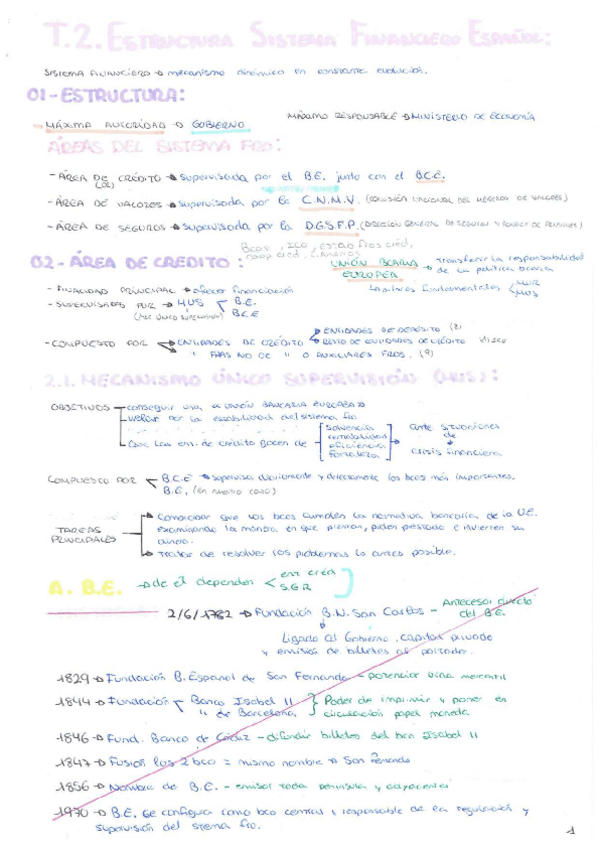 T.2. ESTRUCTURA SISTEMA FINANCIERO ESPAÑOL:
SISTEMA FINANCIERO → mecanismo dinámico en constante evolución.
01-ESTRUCTURA:
MÁXIMA AUTORIDAD → GOBIERNO
MÁXIMO RESPONSABLE → MINISTERIO DE ECONOMÍA
ÁREAS DEL SISTEMA FRO:
- ÁREA DE CRÉDITO → supervisada por el B.E. junto con el B.C.E.
- ÁREA DE VALORES → supervisada por la C.N.M.V. (COMISIÓN NACIONAL DEL MERCADO DE VALORES)
- ÁREA DE SEGUROS → supervisada por la D.G.S.F.P. (DIRECCIÓN GENERAL DE SEGUROS Y FONDOS DE PENSIONES)
Bcos, ICO, estab fros créd,
coop créd, C.Ahorros
02-ÁREA DE CREDITO:
UNIÓN BCARIA EUROPEA → transferir la responsabilidad
de la política bcaria
- FINALIDAD PRINCIPAL → ofrecer financiación
Pilares fundamentales < MUR
MUS
- SUPERVISADAS POR → MUS < B.E.
(MEC ÚNICO SUPERVISIÓN) BCE
- COMPUESTO POR ENTIDADES DE CRÉDITO ENTIDADES DE DEPÓSITO (8)
RESTO DE ENTIDADES DE CRÉDITO
" FRAS NO DE " O AUXILIARES FROS. (9)
2.1. MECANISMO ÚNICO SUPERVISIÓN (MUS):
OBJETIVOS conseguir una UNIÓN BANCARIA EUROPEA
velar por la estabilidad del sistema fro
Que las ent. de crédito gocen de solvencia
rentabilidad
eficiencia
fortaleza
ante situaciones
de
crisis financiera
COMPUESTO POR B.C.E → supervisa diariamente y directamente los bcos más importantes.
B.E. (en nuestro caso)
TAREAS PRINCIPALES
Comprobar que los bcos cumplen la normativa bancaria de la U.E.
examinando la manera en que prestan, piden prestado e invierten su
dinero.
Tratar de resolver los problemas lo antes posible.
A. B.E. → de él dependen < ent créd
S.G.R
2/6/1782 → Fundación B.N. San Carlos - Antecesor directo
del B.E.
Ligado al Gobierno, capital privado
y emisión de billetes al portador.
1829 → Fundación B. Español de San Fernando - potenciar vida mercantil
1844 → Fundación < Banco Isabel II
" de Barcelona
Poder de imprimir y poner en
circulación papel moneda
1846 → Fund. Banco de Cádiz - difundir billetes del bco Isabel II
1847 → Fusión los 2 bco = mismo nombre → San Fernando
1856 → Nombre de B.E. - emisor toda península y adyacentes
1970 → B.E. se configura como bco central y responsable de la regulación y
supervisión del stema fro.
1